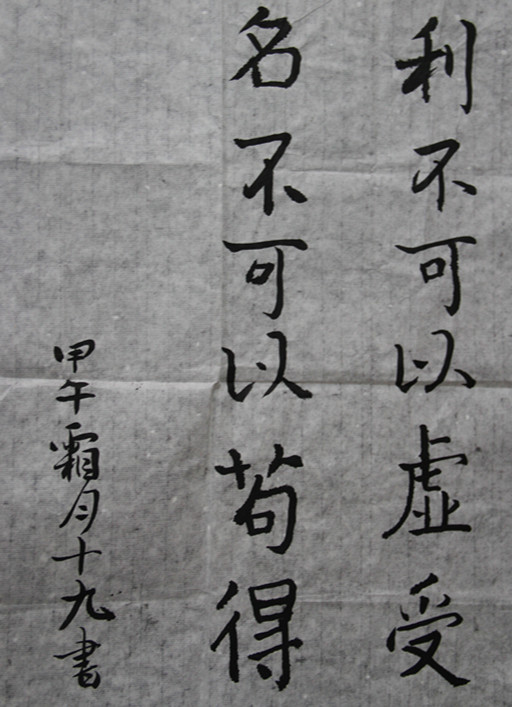 利不可以虚受
名不可以苟得
甲午霜月十九書